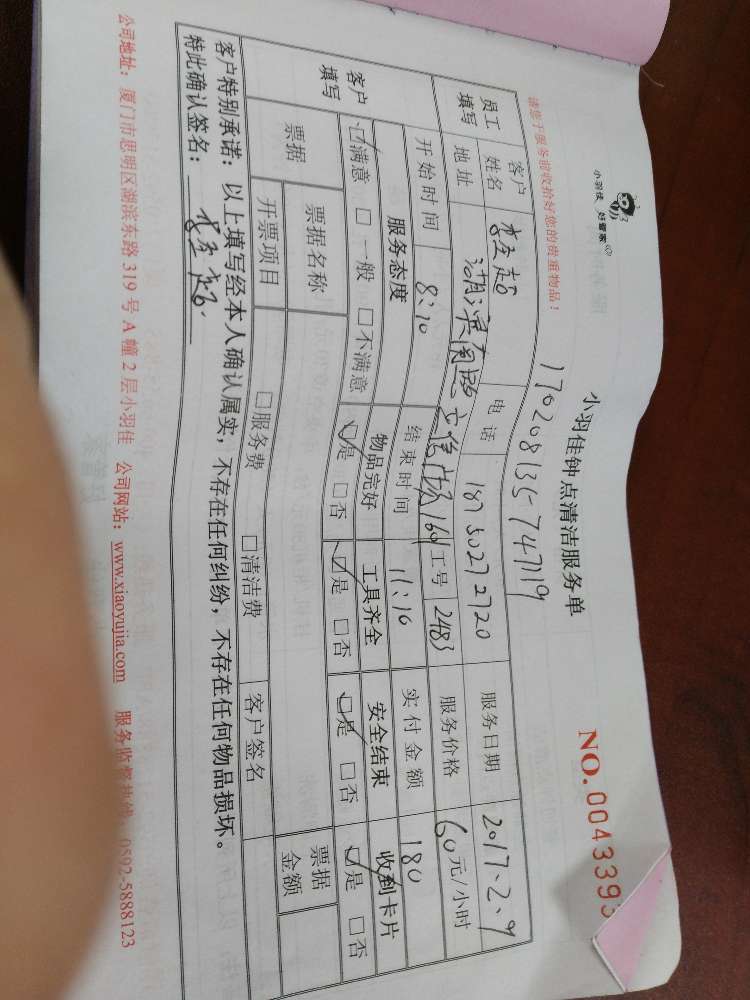 小羽佳 好管家
小羽佳钟点清洁服务单
NO.0043393
请您于服务前收拾好您的贵重物品！
170208135747119
员工填写 客户姓名 电话 18750272720 服务日期 2017.2.9
地址 工号 2483 服务价格 60元/小时
开始时间 8:10 结束时间 11:10 实付金额 180
客户填写 服务态度 物品完好 工具齐全 安全结束 收到卡片
☑满意 □一般 □不满意 ☑是 □否 ☑是 □否 ☑是 □否 ☑是 □否
票据 票据名称 票据金额
开票项目 □服务费 □清洁费 客户签名
客户特别承诺：以上填写经本人确认属实，不存在任何纠纷，不存在任何物品损坏。
特此确认签名：
公司地址：厦门市思明区湖滨东路319号A幢2层小羽佳 公司网站：www.xiaoyujia.com 服务监督热线 0592-5888123